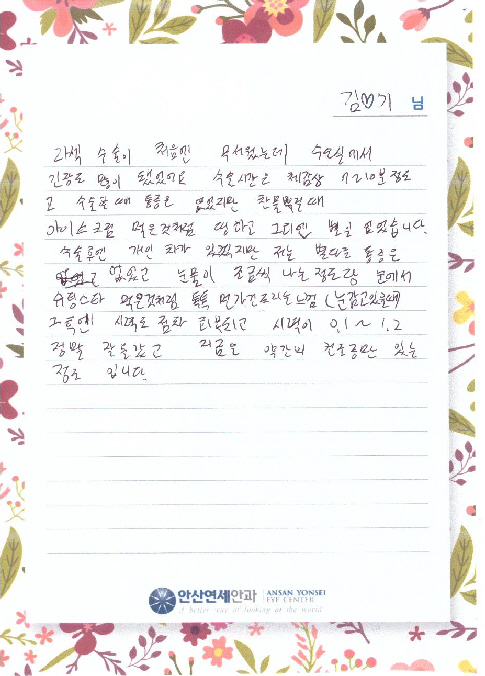 김♡기 님
라섹 수술이 처음엔 무서웠는데 수술실에서
긴장도 많이 됐었어요 수술시간은 체감상 기 10분 정도
고 수술할 때 통증은 없었지만 찬물 뿌릴 때
아이스크림 먹은것처럼 띵하고 그다지 별로 없었습니다.
수술후엔 개인 차가 있겠지만 저는 별다른 통증은
없었고 눈물이 조금씩 나는 정도랑 눈에서
슈팅스타 먹은것처럼 톡톡 먼가 느낌 (눈감고있을때)
그 후엔 시력도 점차 회복되고 시력이 0.1 ~ 1.2
정말 잘 보이고 지금은 약간의 건조증만 있는
정도 입니다.
안산연세안과 ANSAN YONSEI
EYE CENTER
A better way of looking at the world